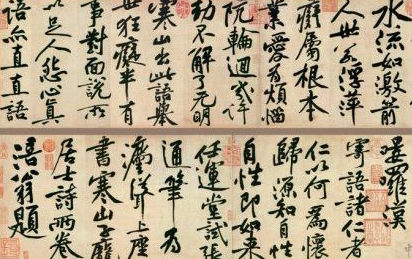 水流如激箭
人世若浮萍
癡屬根本
業愛為煩惱
阬輪迴幾許
劫不解了无明
寒山出此語舉
世狂癡半有
事對面說所
以足人怨心真
語亦直直語
嘍羅漢
寄語諸仁者
仁以何為懷
歸源知自性
自性即如来
任運堂試張
通筆為
灋聳上座
書寒山子龐
居士詩兩卷
涪翁題